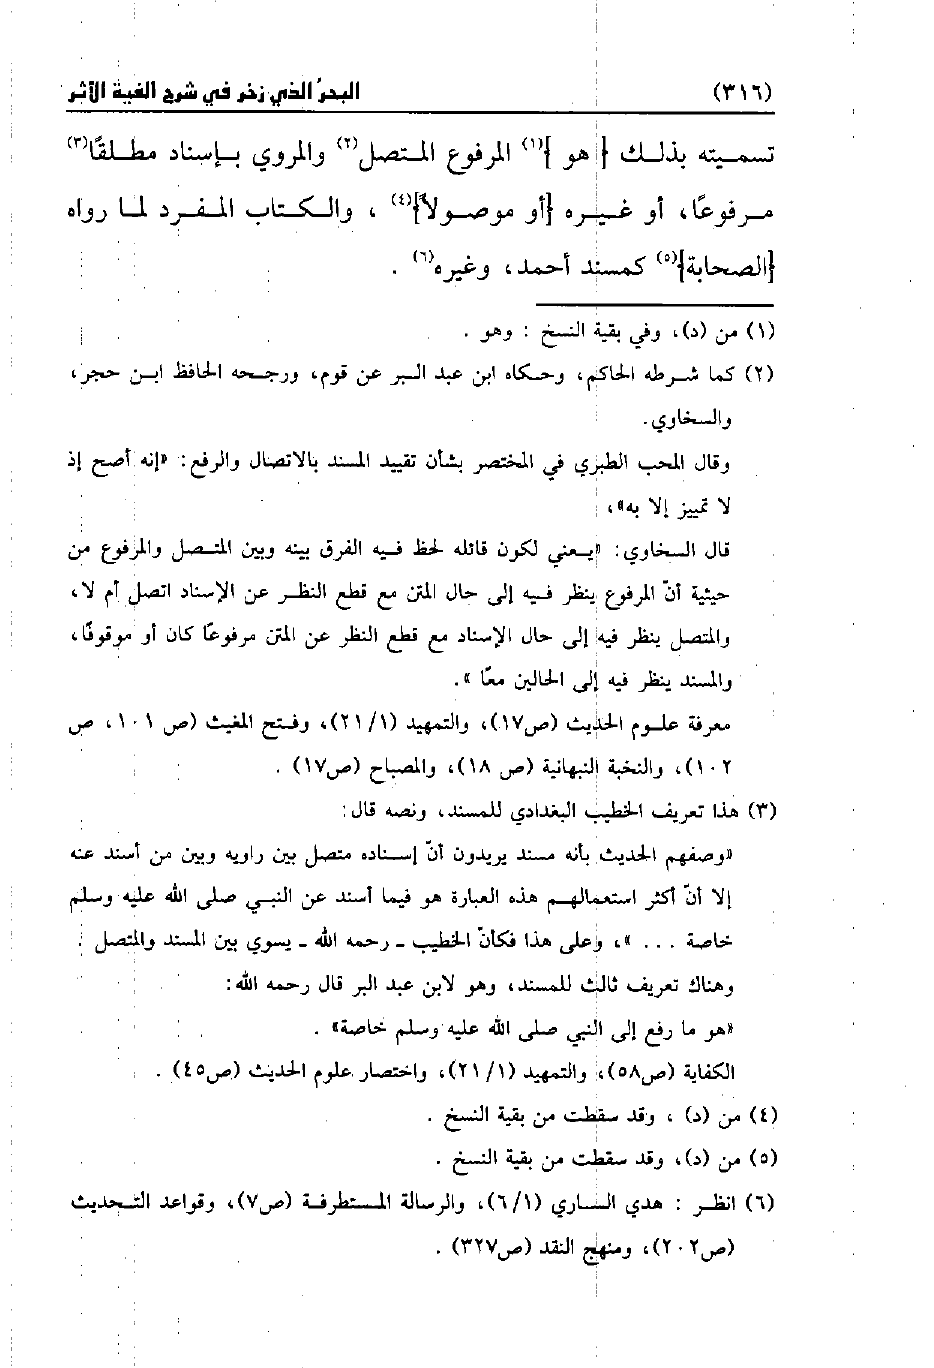 (٣١٦) البحرُ الذي زخر في شرح ألفية الأثر
تسميته بذلك {هو}(١) المرفوع المتصل(٢) والمروي بإسناد مطلقًا(٣)
مرفوعًا، أو غيره {أو موصولاً}(٤) ، والكتاب المفرد لما رواه
{الصحابة}(٥) كمسند أحمد، وغيره(٦) .
(١) من (د)، وفي بقية النسخ : وهو .
(٢) كما شرطه الحاكم، وحكاه ابن عبد البر عن قوم، ورجحه الحافظ ابن حجر،
والسخاوي.
وقال المحب الطبري في المختصر بشأن تقييد المسند بالاتصال والرفع: «إنه أصح إذ
لا تمييز إلا به»،
قال السخاوي: «يعني لكون قائله لحظ فيه الفرق بينه وبين المتصل والمرفوع من
حيثية أنّ المرفوع ينظر فيه إلى حال المتن مع قطع النظر عن الإسناد اتصل أم لا،
والمتصل ينظر فيه إلى حال الإسناد مع قطع النظر عن المتن مرفوعًا كان أو موقوفًا،
والمسند ينظر فيه إلى الحالين معًا ».
معرفة علوم الحديث (ص١٧)، والتمهيد (٢١/١)، وفتح المغيث (ص ١٠١، ص
١٠٢)، والنخبة النبهانية (ص ١٨)، والمصباح (ص١٧) .
(٣) هذا تعريف الخطيب البغدادي للمسند، ونصه قال:
«وصفهم الحديث بأنه مسند يريدون أنّ إسناده متصل بين راويه وبين من أسند عنه
إلا أنّ أكثر استعمالهم هذه العبارة هو فيما أسند عن النبي صلى الله عليه وسلم
خاصة ... »، وعلى هذا فكأنّ الخطيب ـ رحمه الله ـ يسوي بين المسند والمتصل .
وهناك تعريف ثالث للمسند، وهو لابن عبد البر قال رحمه الله:
«هو ما رفع إلى النبي صلى الله عليه وسلم خاصة» .
الكفاية (ص٥٨)، والتمهيد (٢١/١)، واختصار علوم الحديث (ص٤٥) .
(٤) من (د) ، وقد سقطت من بقية النسخ .
(٥) من (د)، وقد سقطت من بقية النسخ .
(٦) انظر : هدي الساري (٦/١)، والرسالة المستطرفة (ص٧)، وقواعد التحديث
(ص٢٠٢)، ومنهج النقد (ص٣٢٧) .